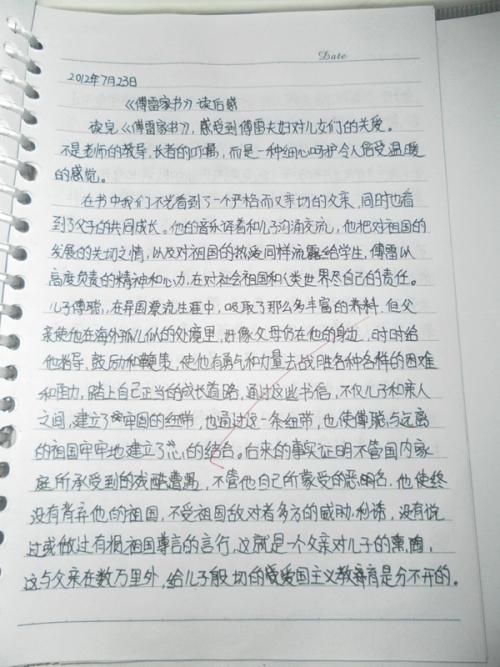 Date
2012年7月23日
《傅雷家书》读后感
读完《傅雷家书》，感受到傅雷夫妇对儿女们的关爱。
不是老师的教导，长者的叮嘱，而是一种细心呵护令人倍受温暖
的感觉。
在书中我们不光看到了一个严格而又亲切的父亲，同时也看
到了父子的共同成长。他的音乐译者和儿子沟通交流，他把对祖国的
发展的关切之情，以及对祖国的热爱同样流露给学生，傅雷以
高度负责的精神和心力，在对社会祖国和人类世界尽自己的责任。
儿子傅聪，在异国漂流生涯中，吸取了那么多丰富的养料，但父
亲使他在海外孤儿似的处境里，好像父母仍在他的身边，时时给
他指导，鼓励和鞭策，使他有勇气和力量去战胜各种各样的困难
和阻力，踏上自己正当的成长道路，通过这些书信，不仅儿子和亲人
之间，建立了牢固的纽带，也通过这一条纽带，也使傅聪与远离
的祖国牢牢地建立了心的结合。后来的事实证明不管国内家
庭所承受到的残酷遭遇，不管他自己所蒙受的恶名，他使终
没有背弃他的祖国，不受祖国敌对者多方的威胁，利诱，没有说
过或做过有损祖国尊言的言行，这就是一个父亲对儿子的熏陶，
这与父亲在数万里外，给儿子殷切的爱国主义教育是分不开的。